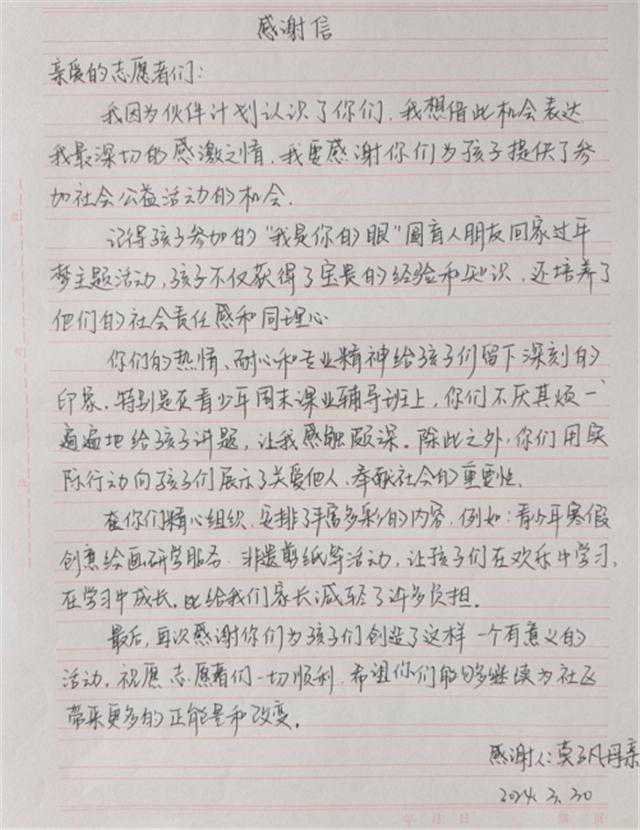 感谢信
亲爱的志愿者们：
我因为伙伴计划认识了你们，我想借此机会表达
我最深切的感激之情，我要感谢你们为孩子提供了参
加社会公益活动的机会.
记得孩子参加的“我是你的眼”圆盲人朋友回家过年
梦主题活动，孩子不仅获得了宝贵的经验和知识，还培养了
他们的社会责任感和同理心
你们的热情、耐心和专业精神给孩子们留下深刻的
印象，特别是在青少年周末课业辅导班上，你们不厌其烦一
遍遍地给孩子讲题，让我感触颇深。除此之外，你们用实
际行动向孩子们展示了关爱他人、奉献社会的重要性.
在你们精心组织、安排了丰富多彩的内容，例如：青少年寒假
创意绘画研学服务、非遗剪纸等活动，让孩子们在欢乐中学习，
在学习中成长。也给我们家长减轻了许多负担。
最后，再次感谢你们为孩子们创造了这样一个有意义的
活动，祝愿志愿者们一切顺利，希望你们能够继续为社区
带来更多的正能量和改变。
感谢人：莫子凡母亲
2024.3.30
年 月 日